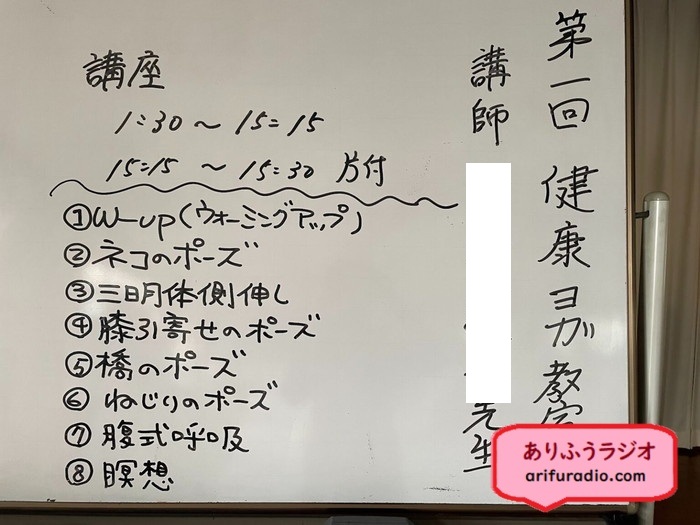 第一回 健康ヨガ教室
講師
先生
講座
1:30～15:15
15:15～15:30 片付
①W-up(ウォーミングアップ)
②ネコのポーズ
③三日月体側伸し
④膝引寄せのポーズ
⑤橋のポーズ
⑥ねじりのポーズ
⑦腹式呼吸
⑧瞑想
ありふうラジオ
arifuradio.com